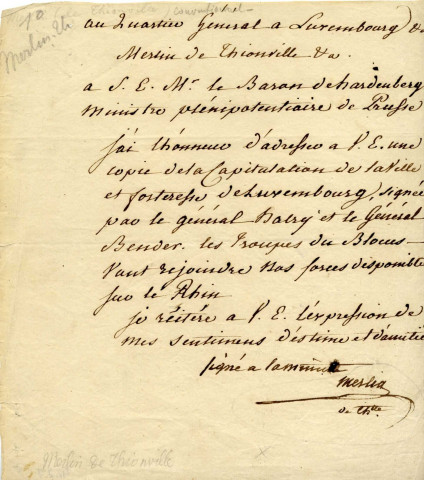 10
Merlin
Thionville
au Quartier Général a Luxembourg &a
Merlin de Thionville &a
a S. E. Mr. le Baron de hardenberg
Ministre plénipotentiaire de Prusse
j'ai l'honneur d'adresser a V. E. une
copie de la Capitulation de la Ville
et forteresse de Luxembourg, signée
par le général hatry et le Général
Bender. les Troupes du Blocus
Vont rejoindre nos forces disponible
sur le Rhin
je réitére a V. E. l'expression de
mes sentimens d'estime et d'amitié
signé a la minute
Merlin
de Thlle
Merlin de Thionville